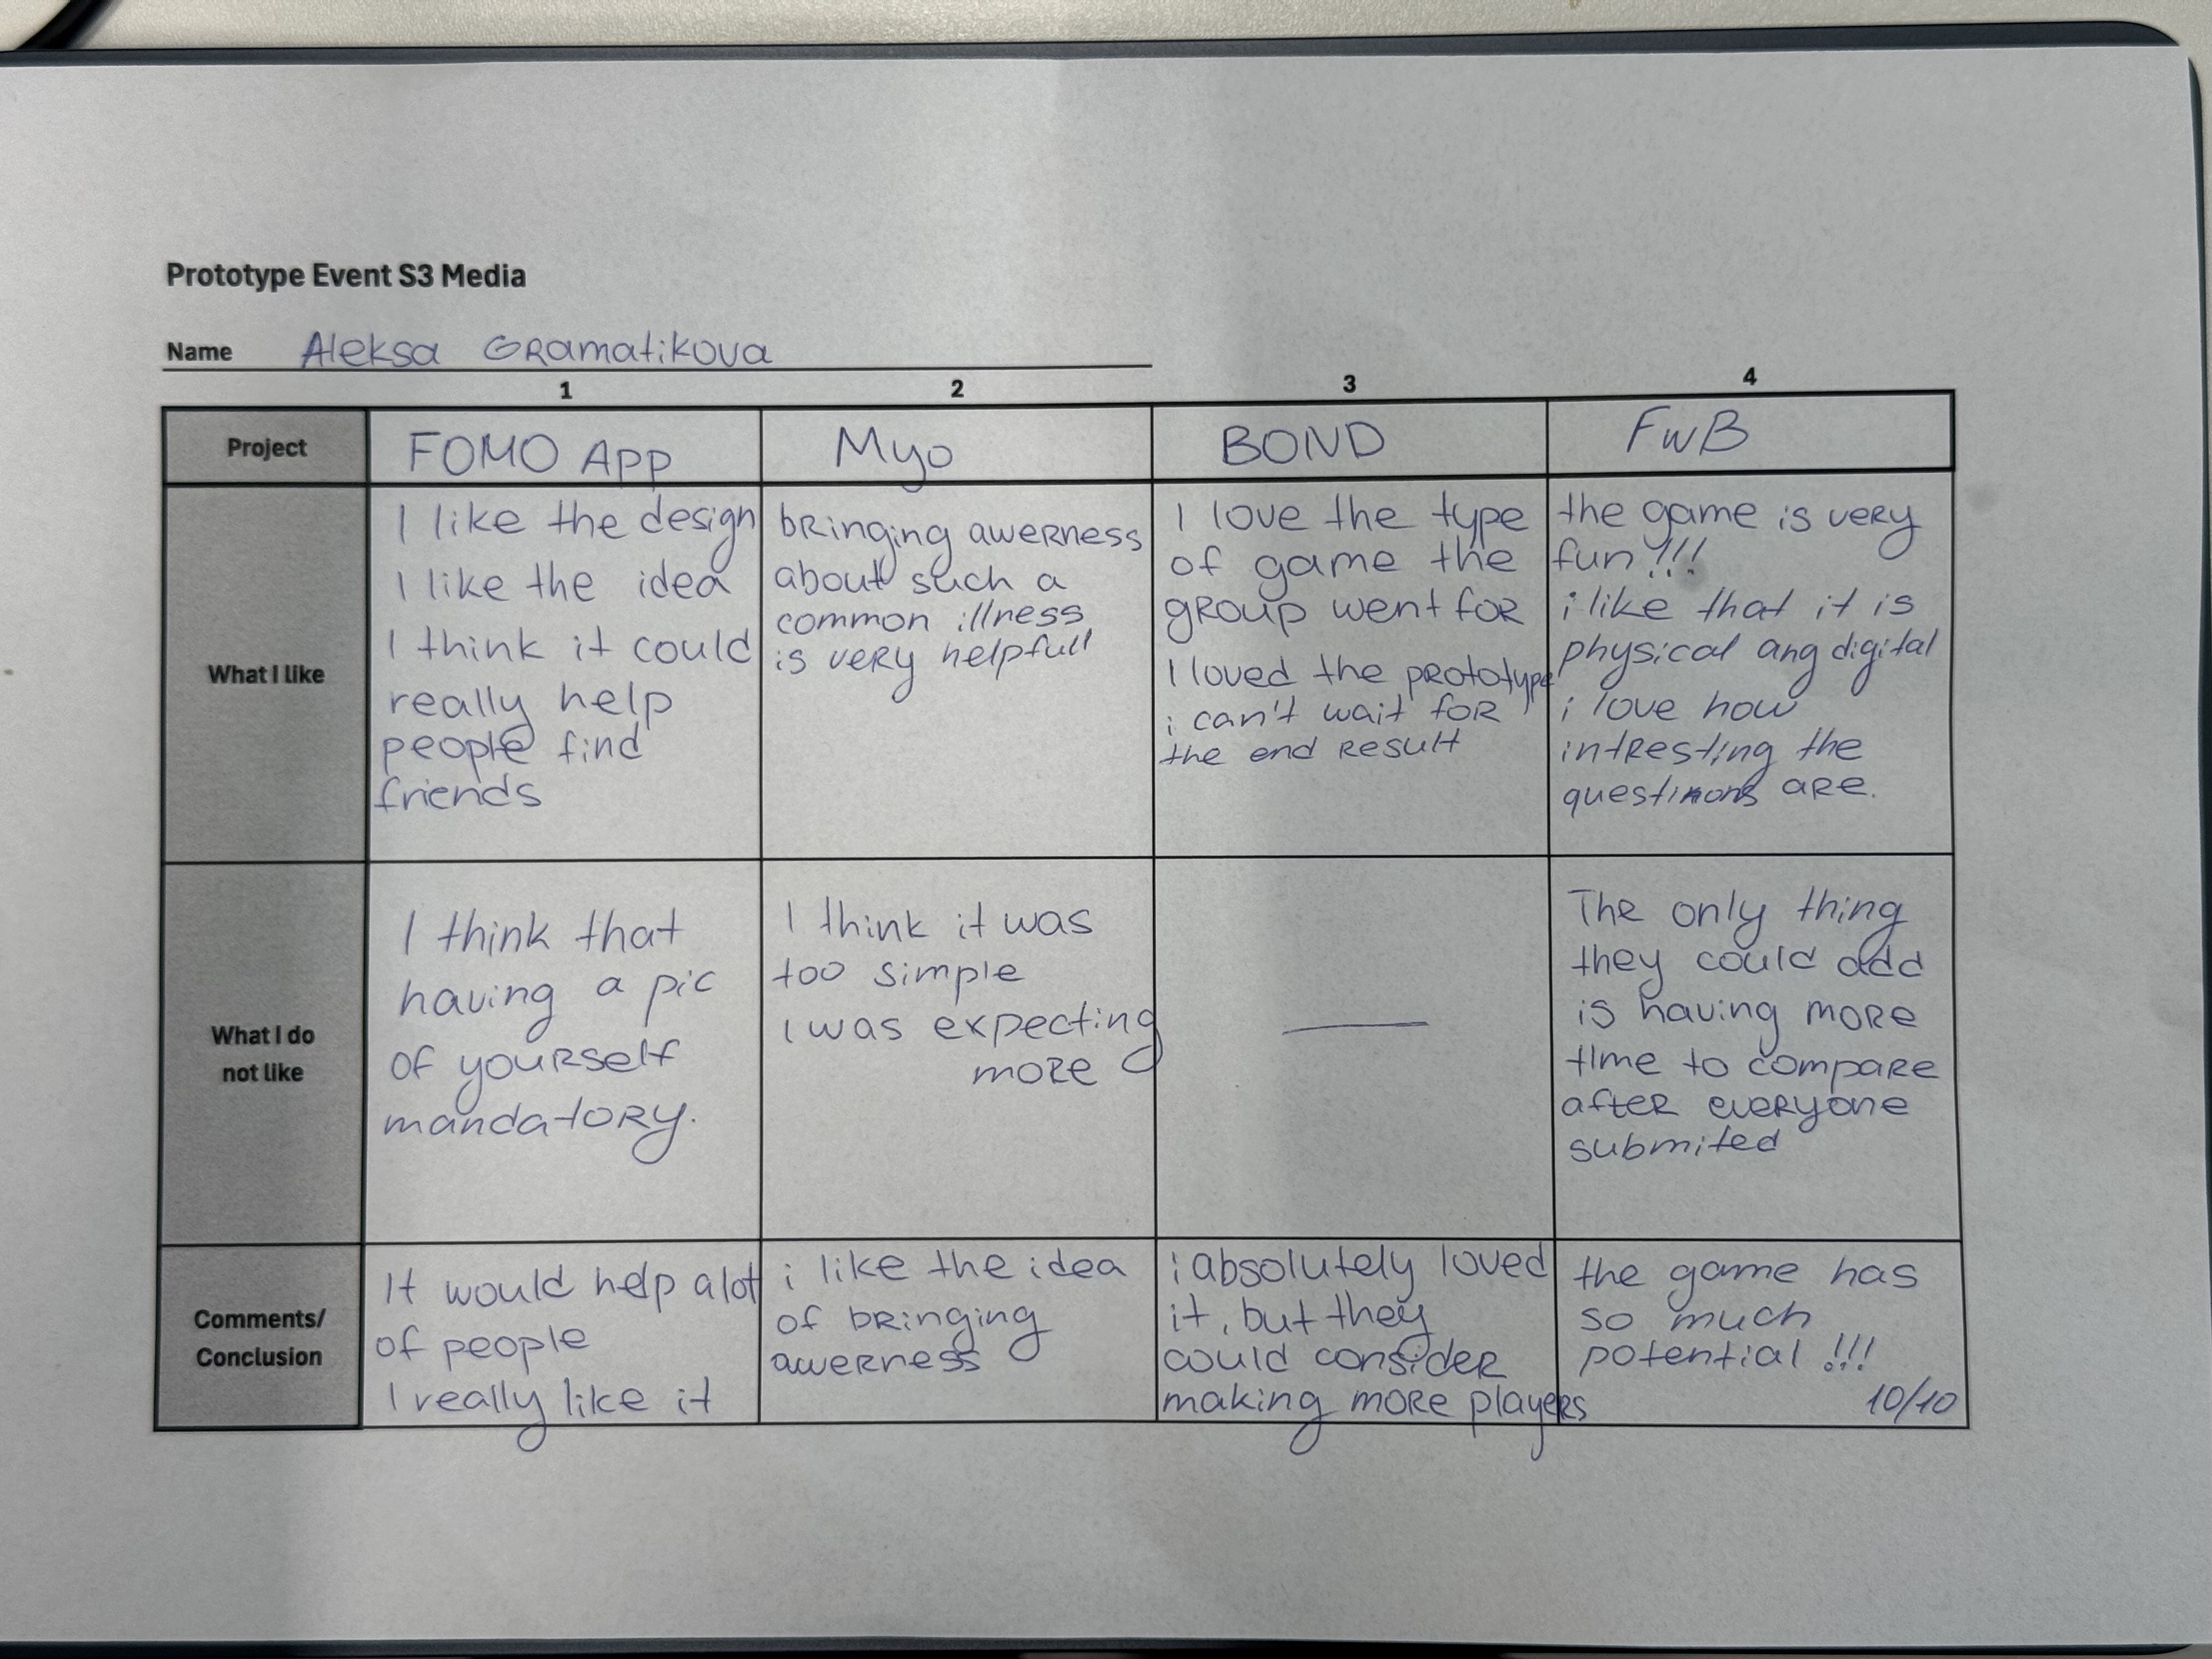 Prototype Event S3 Media
Name Aleksa Gramatikova
1 2 3 4
Project
FOMO App
Myo
BOND
FwB
What I like
I like the design
I like the idea
I think it could
really help
people find
friends
bringing awerness
about such a
common illness
is very helpfull
I love the type
of game the
group went for
I loved the prototype
i can't wait for
the end result
the game is very
fun!!!
i like that it is
physical ang digital
i love how
intresting the
are.
What I do
not like
I think that
having a pic
of yourself
mandatory.
I think it was
too simple
I was expecting
more
—
The only thing
they could add
is having more
time to compare
after everyone
submited
Comments/
Conclusion
It would help alot
of people
I really like it
i like the idea
of bringing
awerness
i absolutely loved
it, but they
could consider
making more players
the game has
so much
potential!!!
10/10